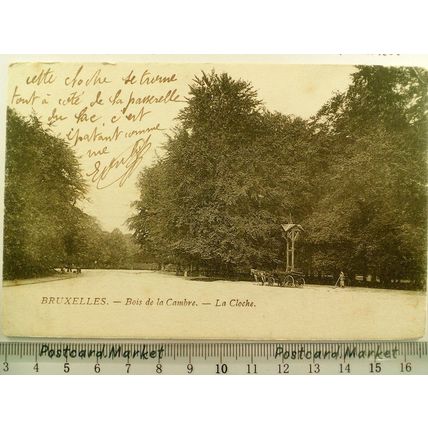 cette cloche se trouve
tout à côté de la passerelle
du Lac, c'est
épatant comme
vue
BRUXELLES. — Bois de la Cambre. — La Cloche.
Postcard.Market Postcard.Market
3 4 5 6 7 8 9 10 11 12 13 14 15 16